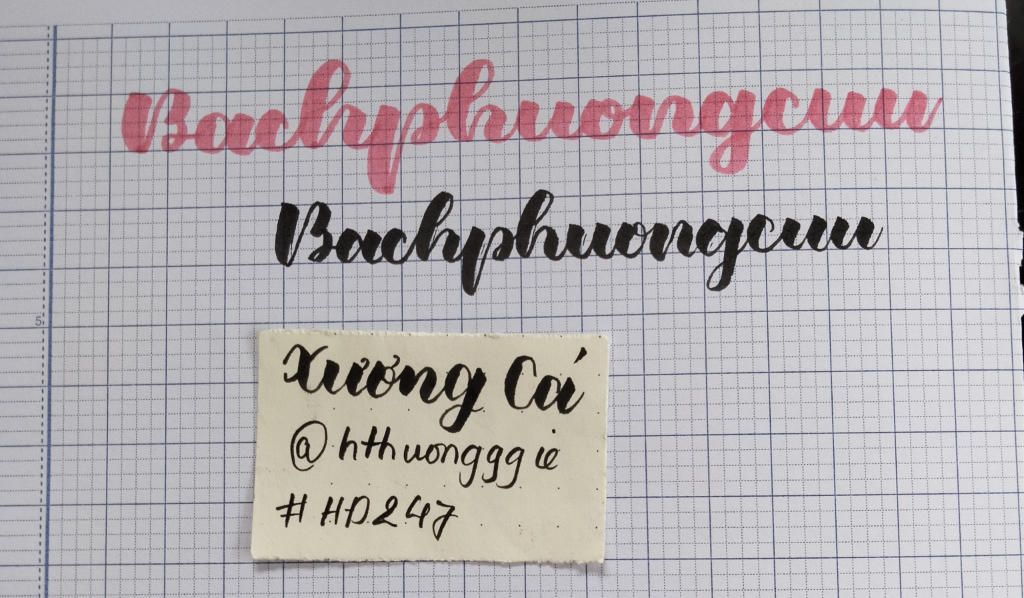 Bachphuongcuu
Bachphuongcuu
5
Xương Cá
@hthuongggie
#HD247